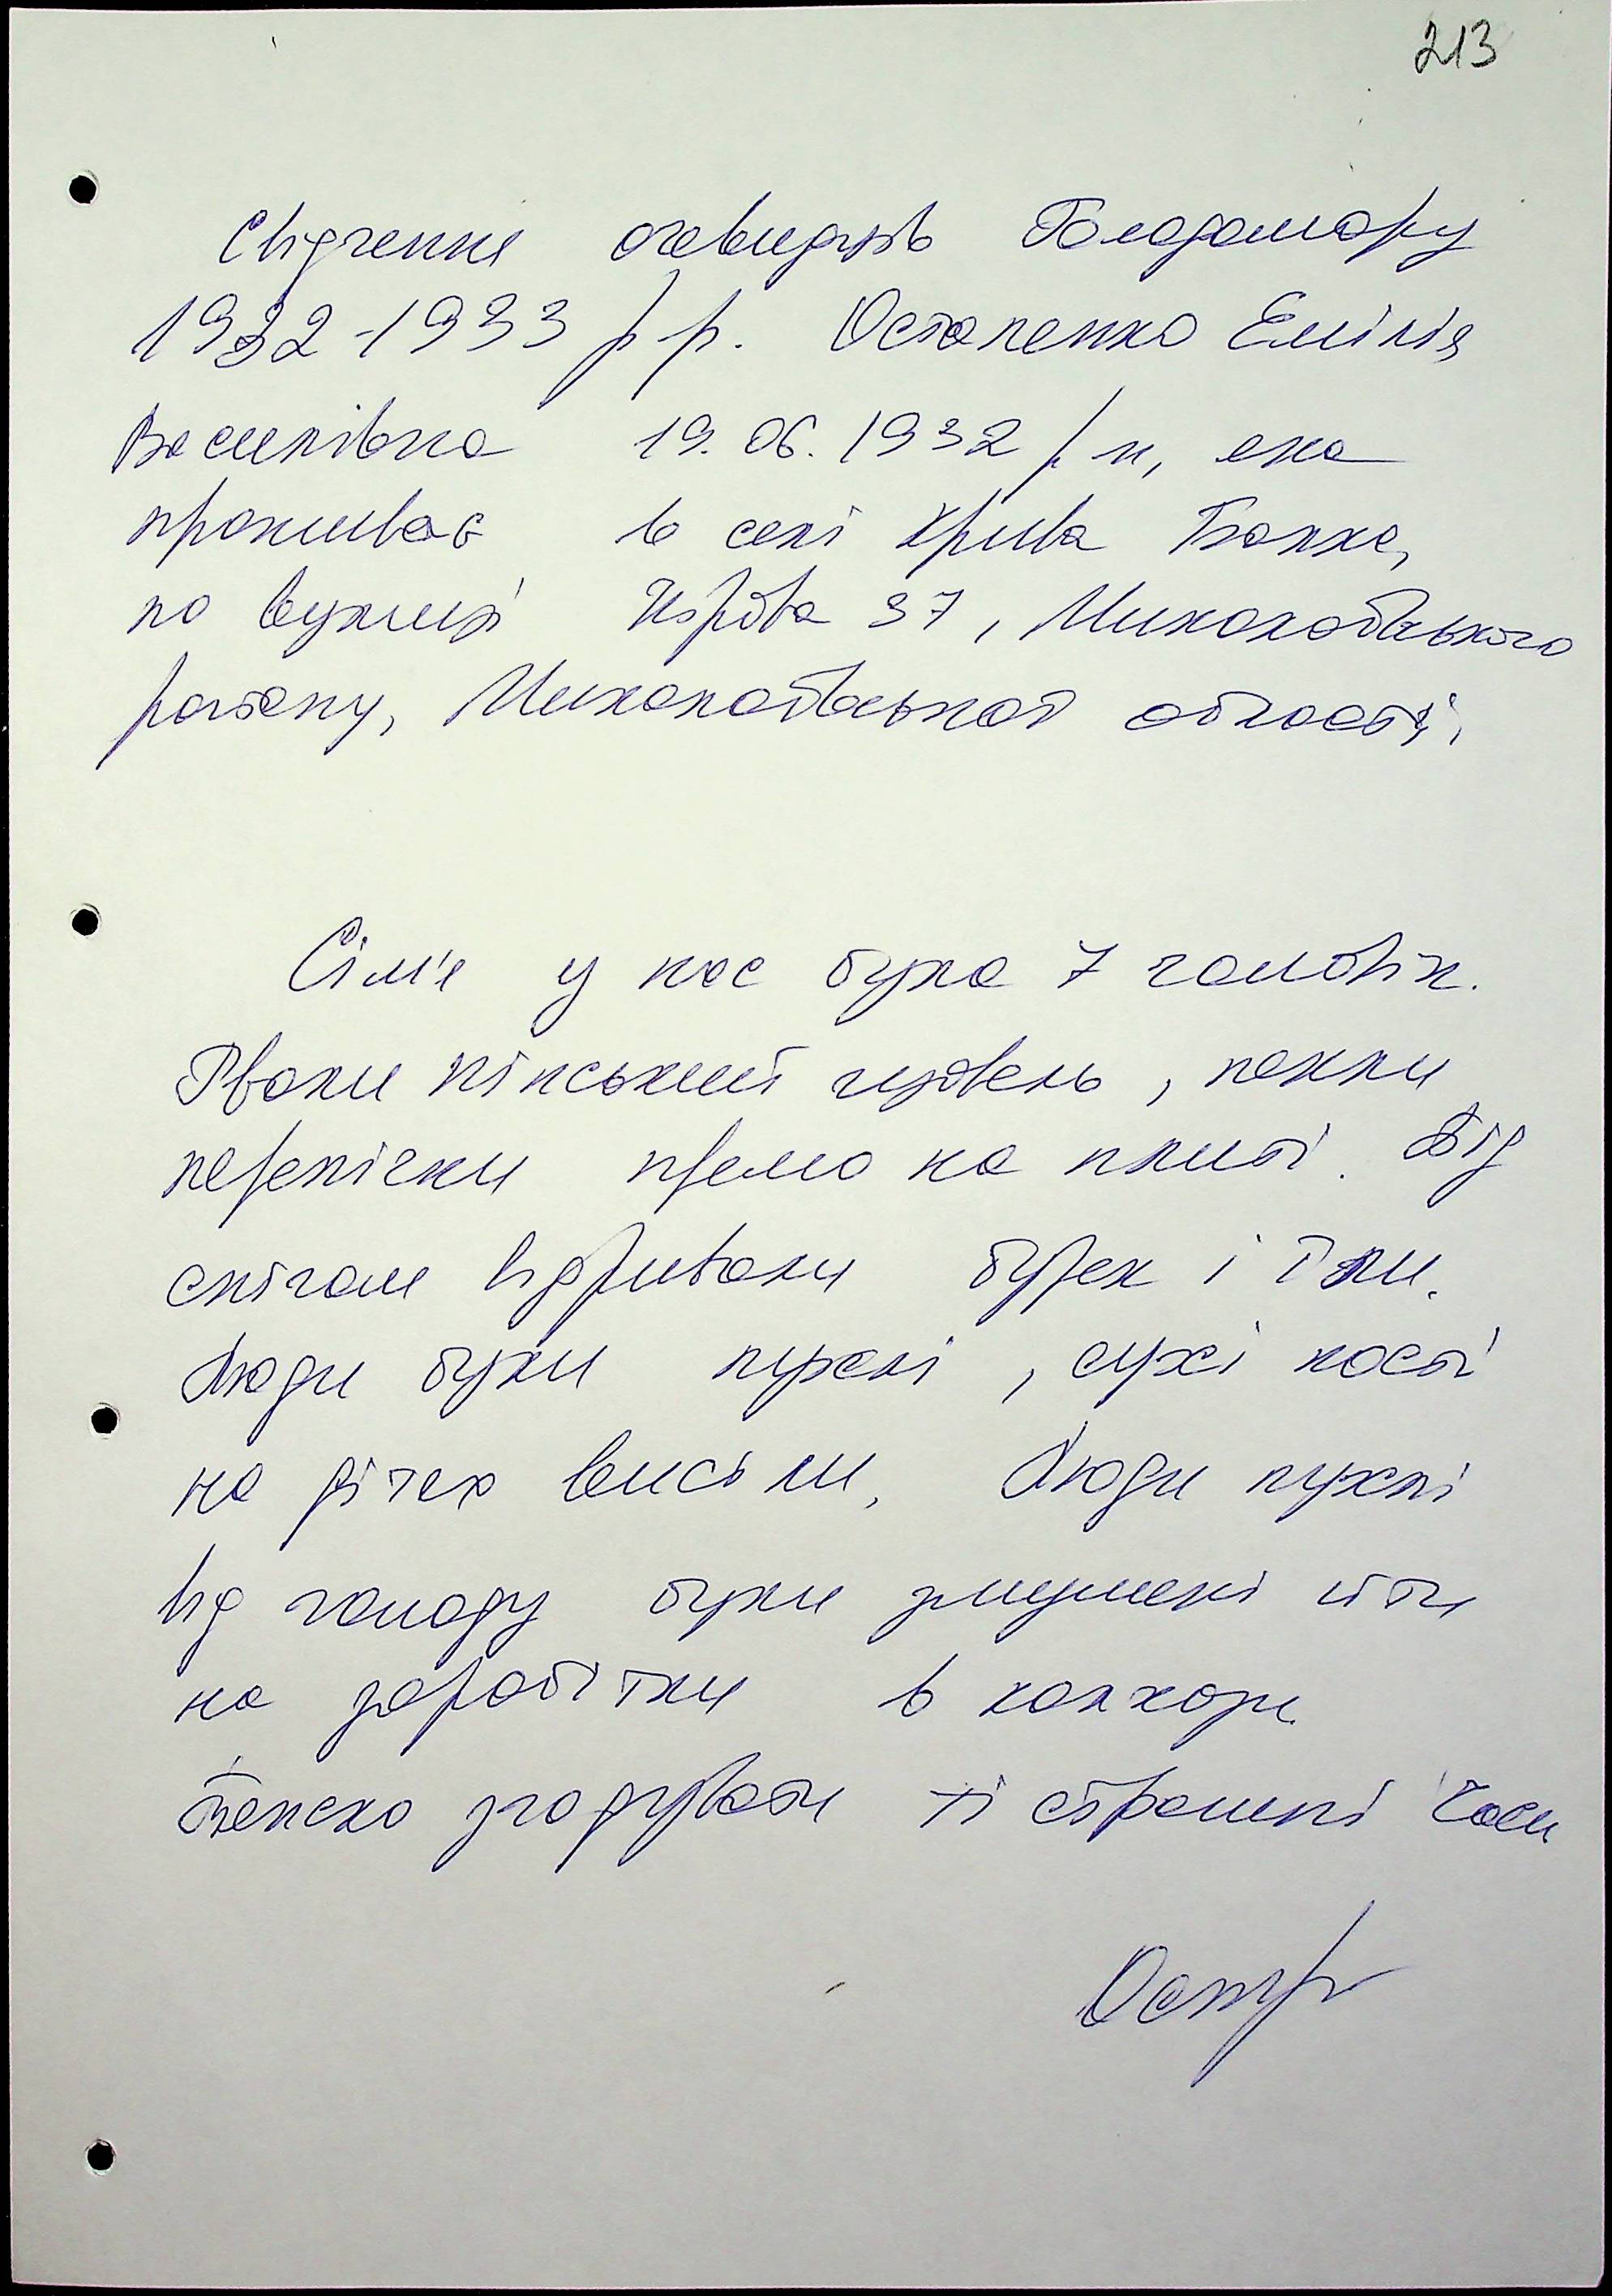 213
Свідчення очевидців Голодомору
1932-1933 рр. Остапенко Емілія
Василівна 19.06.1932 р н, яка
проживає в селі Крива Балка,
по вулиці Кірова 37, Миколаївського
району, Миколаївської області,
Сім'я у нас була 7 чоловік.
Рвали кінський щавель, пекли
перепічки прямо на плиті. Від
снігом відривали буряк і їли.
Люди були пухлі, сухі кості
на дітях висіли. Люди пухлі
від голоду були змушені йти
на заробітки в колхози.
Тяжко згадувати ті страшні часи